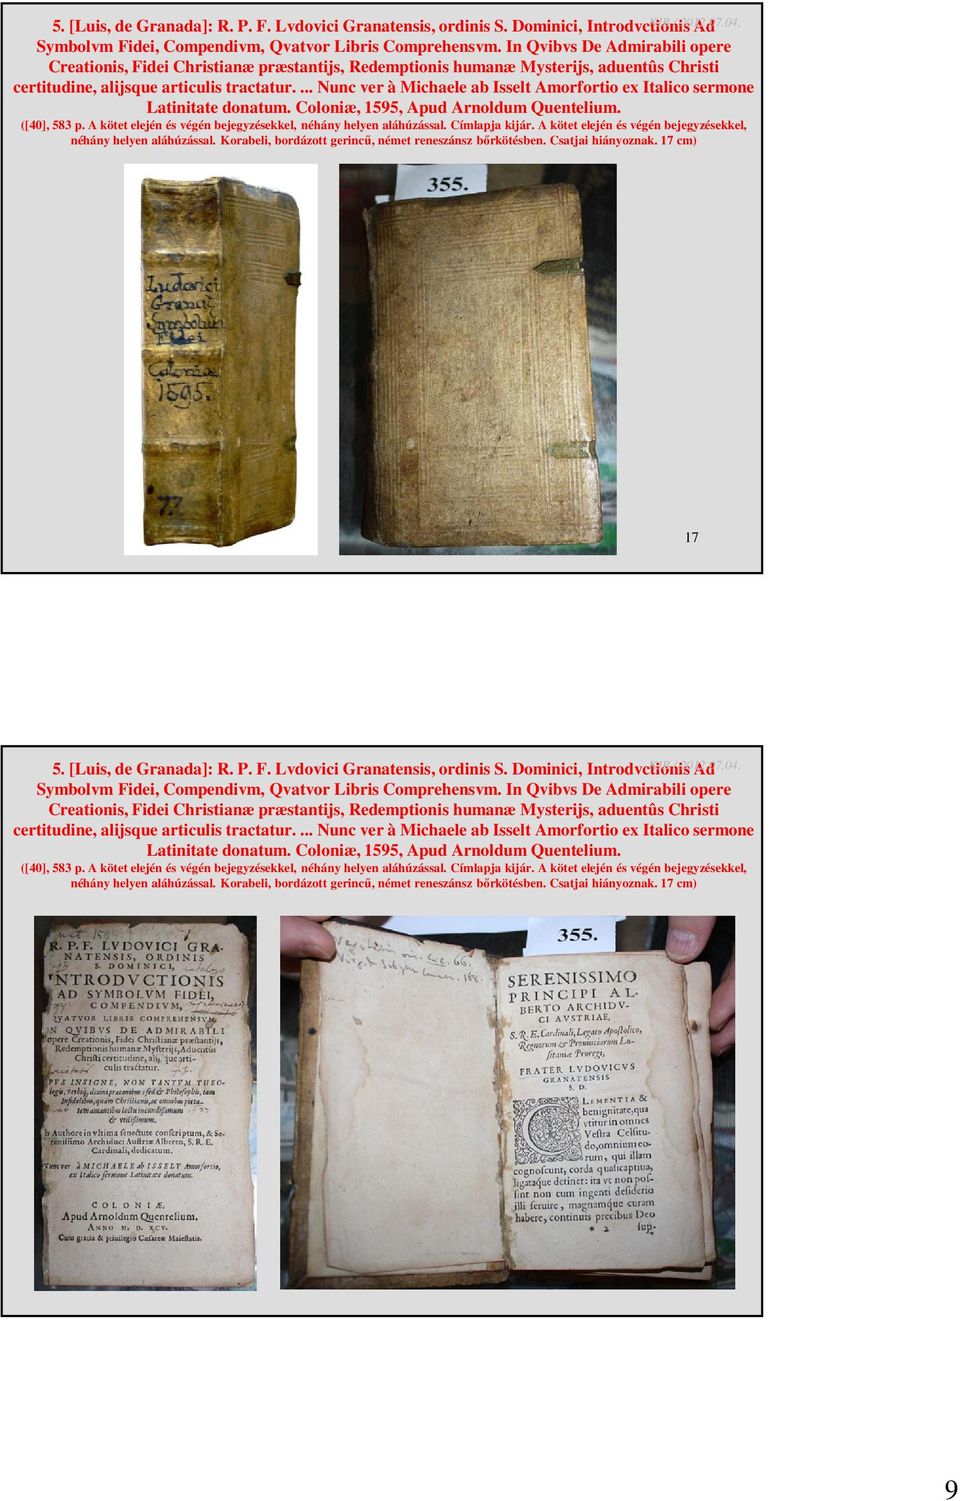 5. [Luis, de Granada]: R. P. F. Lvdovici Granatensis, ordinis S. Dominici, Introdvctionis Ad
Symbolvm Fidei, Compendivm, Qvatvor Libris Comprehensvm. In Qvibvs De Admirabili opere
Creationis, Fidei Christianæ præstantijs, Redemptionis humanæ Mysterijs, aduentûs Christi
certitudine, alijsque articulis tractatur. ... Nunc ver à Michaele ab Isselt Amorfortio ex Italico sermone
Latinitate donatum. Coloniæ, 1595, Apud Arnoldum Quentelium.
([40], 583 p. A kötet elején és végén bejegyzésekkel, néhány helyen aláhúzással. Címlapja kijár. A kötet elején és végén bejegyzésekkel,
néhány helyen aláhúzással. Korabeli, bordázott gerincű, német reneszánsz bőrkötésben. Csatjai hiányoznak. 17 cm)
355.
Ludovici
Granat
Symbolum
Fidei
Coloniæ
1595.
77.
17
5. [Luis, de Granada]: R. P. F. Lvdovici Granatensis, ordinis S. Dominici, Introdvctionis Ad
Symbolvm Fidei, Compendivm, Qvatvor Libris Comprehensvm. In Qvibvs De Admirabili opere
Creationis, Fidei Christianæ præstantijs, Redemptionis humanæ Mysterijs, aduentûs Christi
certitudine, alijsque articulis tractatur. ... Nunc ver à Michaele ab Isselt Amorfortio ex Italico sermone
Latinitate donatum. Coloniæ, 1595, Apud Arnoldum Quentelium.
([40], 583 p. A kötet elején és végén bejegyzésekkel, néhány helyen aláhúzással. Címlapja kijár. A kötet elején és végén bejegyzésekkel,
néhány helyen aláhúzással. Korabeli, bordázott gerincű, német reneszánsz bőrkötésben. Csatjai hiányoznak. 17 cm)
R. P. F. LVDOVICI GRA-
NATENSIS, ORDINIS
S. DOMINICI,
INTRODVCTIONIS
AD SYMBOLVM FIDEI,
COMPENDIVM,
QVATVOR LIBRIS COMPREHENSVM.
IN QVIBVS DE ADMIRABILI
opere Creationis, Fidei Chriſtianæ præſtantijs,
Redemptionis humanæ Myſterijs, Aduentûs
Chriſti certitudine, alijsque arti-
culis tractatur.
OPVS INSIGNE, NON TANTVM THEO-
logis, verbiq́, diuini præconibus: ſed & Philoſophis, tam
Infidelibus, quàm Chriſtianis, ac omnibus pieta-
tem amantibus lectu iucundißimum
& vtilißimum.
Ab Authore in vltima ſenectute conſcriptum, & Se-
reniſſimo Archiduci Auſtriæ Alberto, S. R. E.
Cardinali, dedicatum.
Nunc ver à MICHAELE ab ISSELT Amorfortio,
ex Italico ſermone Latinitate donatum.
COLONIÆ,
Apud Arnoldum Quentelium.
ANNO M. D. XCV.
Cum gratia & priuilegio Cæſareæ Maieſtatis.
355.
SERENISSIMO
PRINCIPI AL-
BERTO ARCHIDV-
CI AVSTRIAE,
S. R. E. Cardinali, Legato Apoſtolico,
Regnorum & Prouinciarum Lu-
ſitaniæ Proregi,
FRATER LVDOVICVS
GRANATENSIS
S. D.
CLEMENTIA &
benignitate, qua
vtitur in omnes
Veſtra Celſitu-
do, omnium eo-
rum, qui illam
cognoſcunt, corda quaſi captiua,
ligataque detinet: ita vt non poſ-
ſint non cum ingenti deſiderio
illi ſeruire, magnamque curam
habere, continuis precibus Deo
* 2 ſup.
9